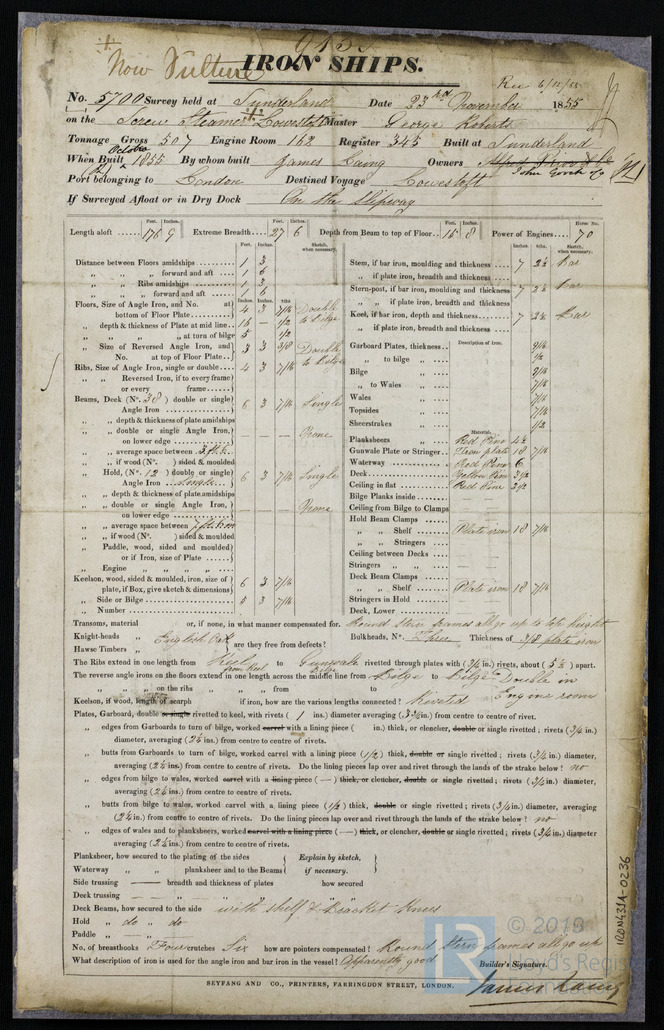 9435
Now Vulture
IRON SHIPS.
Rec 6/12/55
No. 5700 Survey held at Sunderland Date 23rd November 1855
on the Screw Steamer Lowestoft Master George Roberts
Tonnage Gross 507 Engine Room 162 Register 345 Built at Sunderland
When Built October 1855 By whom built James Laing Owners
John Gooch
Port belonging to London Destined Voyage Lowestoft
If Surveyed Afloat or in Dry Dock On the Slipway
Length aloft 176 9 Extreme Breadth 27 6 Depth from Beam to top of Floor 15 8 Power of Engines 70
Distance between Floors amidships 1 3
„ „ „ forward and aft 1 6
„ „ Ribs amidships 1 3
„ „ „ forward and aft 1 6
Floors, Size of Angle Iron, and No. at bottom of Floor Plate 4 3 7/16 Double to Bilge
„ depth & thickness of Plate at mid line 16 — 1/2
„ „ „ at turn of bilge 5 1/2
„ Size of Reversed Angle Iron, and No. at top of Floor Plate 3 3 3/8 Double to Bilge
Ribs, Size of Angle Iron, single or double 4 3 7/16
„ „ Reversed Iron, if to every frame or every frame
Beams, Deck (No. 38) double or single Angle Iron 6 3 7/16 Single
„ „ depth & thickness of plate amidships
„ „ double or single Angle Iron, on lower edge — — — None
„ „ average space between 3 ft 6
„ „ if wood (No. ) sided & moulded
„ Hold, (No. 12) double or single Angle Iron Single 6 3 7/16 Single
„ „ depth & thickness of plate amidships
„ „ double or single Angle Iron, on lower edge — — — None
„ „ average space between
„ „ if wood (No. ) sided & moulded
„ Paddle, wood, sided and moulded or if Iron, size of Plate
„ Engine „ „ „ „
Keelson, wood, sided & moulded, iron, size of plate, if Box, give sketch & dimensions 6 3 7/16
„ Side or Bilge 5 3 7/16
„ Number
Stem, if bar iron, moulding and thickness 7 2½ Bar
„ if plate iron, breadth and thickness
Stern-post, if bar iron, moulding and thickness 7 2½ Bar
„ „ if plate iron, breadth and thickness
Keel, if bar iron, depth and thickness 7 2½ Bar
„ if plate iron, breadth and thickness
Description of Iron.
Garboard Plates, thickness 9/16
„ to bilge „ 1/2
Bilge „ 9/16
„ to Wales „ 7/16
Wales „ 7/16
Topsides „ 7/16
Sheerstrakes „ 1/2
Material.
Planksheers „ Red Pine 4½
Gunwale Plate or Stringer Iron plate 18 7/16
Waterway „ Red Pine 6
Deck „ Yellow Pine 3½
Ceiling in flat „ Red Pine 2½
Bilge Planks inside „
Ceiling from Bilge to Clamps
Hold Beam Clamps
„ „ Shelf Plate iron 18 7/16
„ „ Stringers
Ceiling between Decks
Stringers „ „
Deck Beam Clamps
„ „ Shelf Plate iron 18 7/16
Stringers in Hold
Deck, Lower
Transoms, material or, if none, in what manner compensated for. Round Stern frames all go up to the height
Knight-heads „ English Oak
Hawse Timbers „ are they free from defects?
Bulkheads, No. Three Thickness of 3/8 plate iron
The Ribs extend in one length from Keel to Gunwale rivetted through plates with (3/4 in.) rivets, about (5½) apart.
The reverse angle irons on the floors extend in one length across the middle line from Bilge to Bilge Double in
„ „ „ on the ribs „ „ „ from to Engine room
Keelson, if wood, length of scarph if iron, how are the various lengths connected? Riveted
Plates, Garboard, double or single rivetted to keel, with rivets ( 1 ins.) diameter averaging (3¾ in.) from centre to centre of rivet.
„ edges from Garboards to turn of bilge, worked carvel with a lining piece ( in.) thick, or clencher, double or single rivetted; rivets (3/4 in.) diameter, averaging (2½ ins.) from centre to centre of rivets.
„ butts from Garboards to turn of bilge, worked carvel with a lining piece (1/2) thick, double or single rivetted; rivets (3/4 in.) diameter, averaging (2½ ins.) from centre to centre of rivets. Do the lining pieces lap over and rivet through the lands of the strake below? no
„ edges from bilge to wales, worked carvel with a lining piece ( — ) thick, or clencher, double or single rivetted; rivets (3/4 in.) diameter, averaging (2½ ins.) from centre to centre of rivets.
„ butts from bilge to wales, worked carvel with a lining piece (1/2) thick, double or single rivetted; rivets (3/4 in.) diameter, averaging (2½ in.) from centre to centre of rivets. Do the lining pieces lap over and rivet through the lands of the strake below? no
„ edges of wales and to planksheers, worked carvel with a lining piece ( — ) thick, or clencher, double or single rivetted; rivets (3/4 in.) diameter averaging (2½ ins.) from centre to centre of rivets.
Planksheer, how secured to the plating of the sides Explain by sketch,
Waterway „ „ planksheer and to the Beams if necessary.
Side trussing — breadth and thickness of plates how secured
Deck trussing — „ „ „ „
Deck Beams, how secured to the side with shelf & Bracket Knees
Hold „ do „ do
Paddle „ — „ —
No. of breasthooks Four crutches Six how are pointers compensated? Round Stern frames all go up
What description of iron is used for the angle iron and bar iron in the vessel? Apparently good
Builder's Signature.
James Laing
SEYFANG AND CO., PRINTERS, FARRINGDON STREET, LONDON.
IRON431A-0236
© 2019
Lloyd's Register